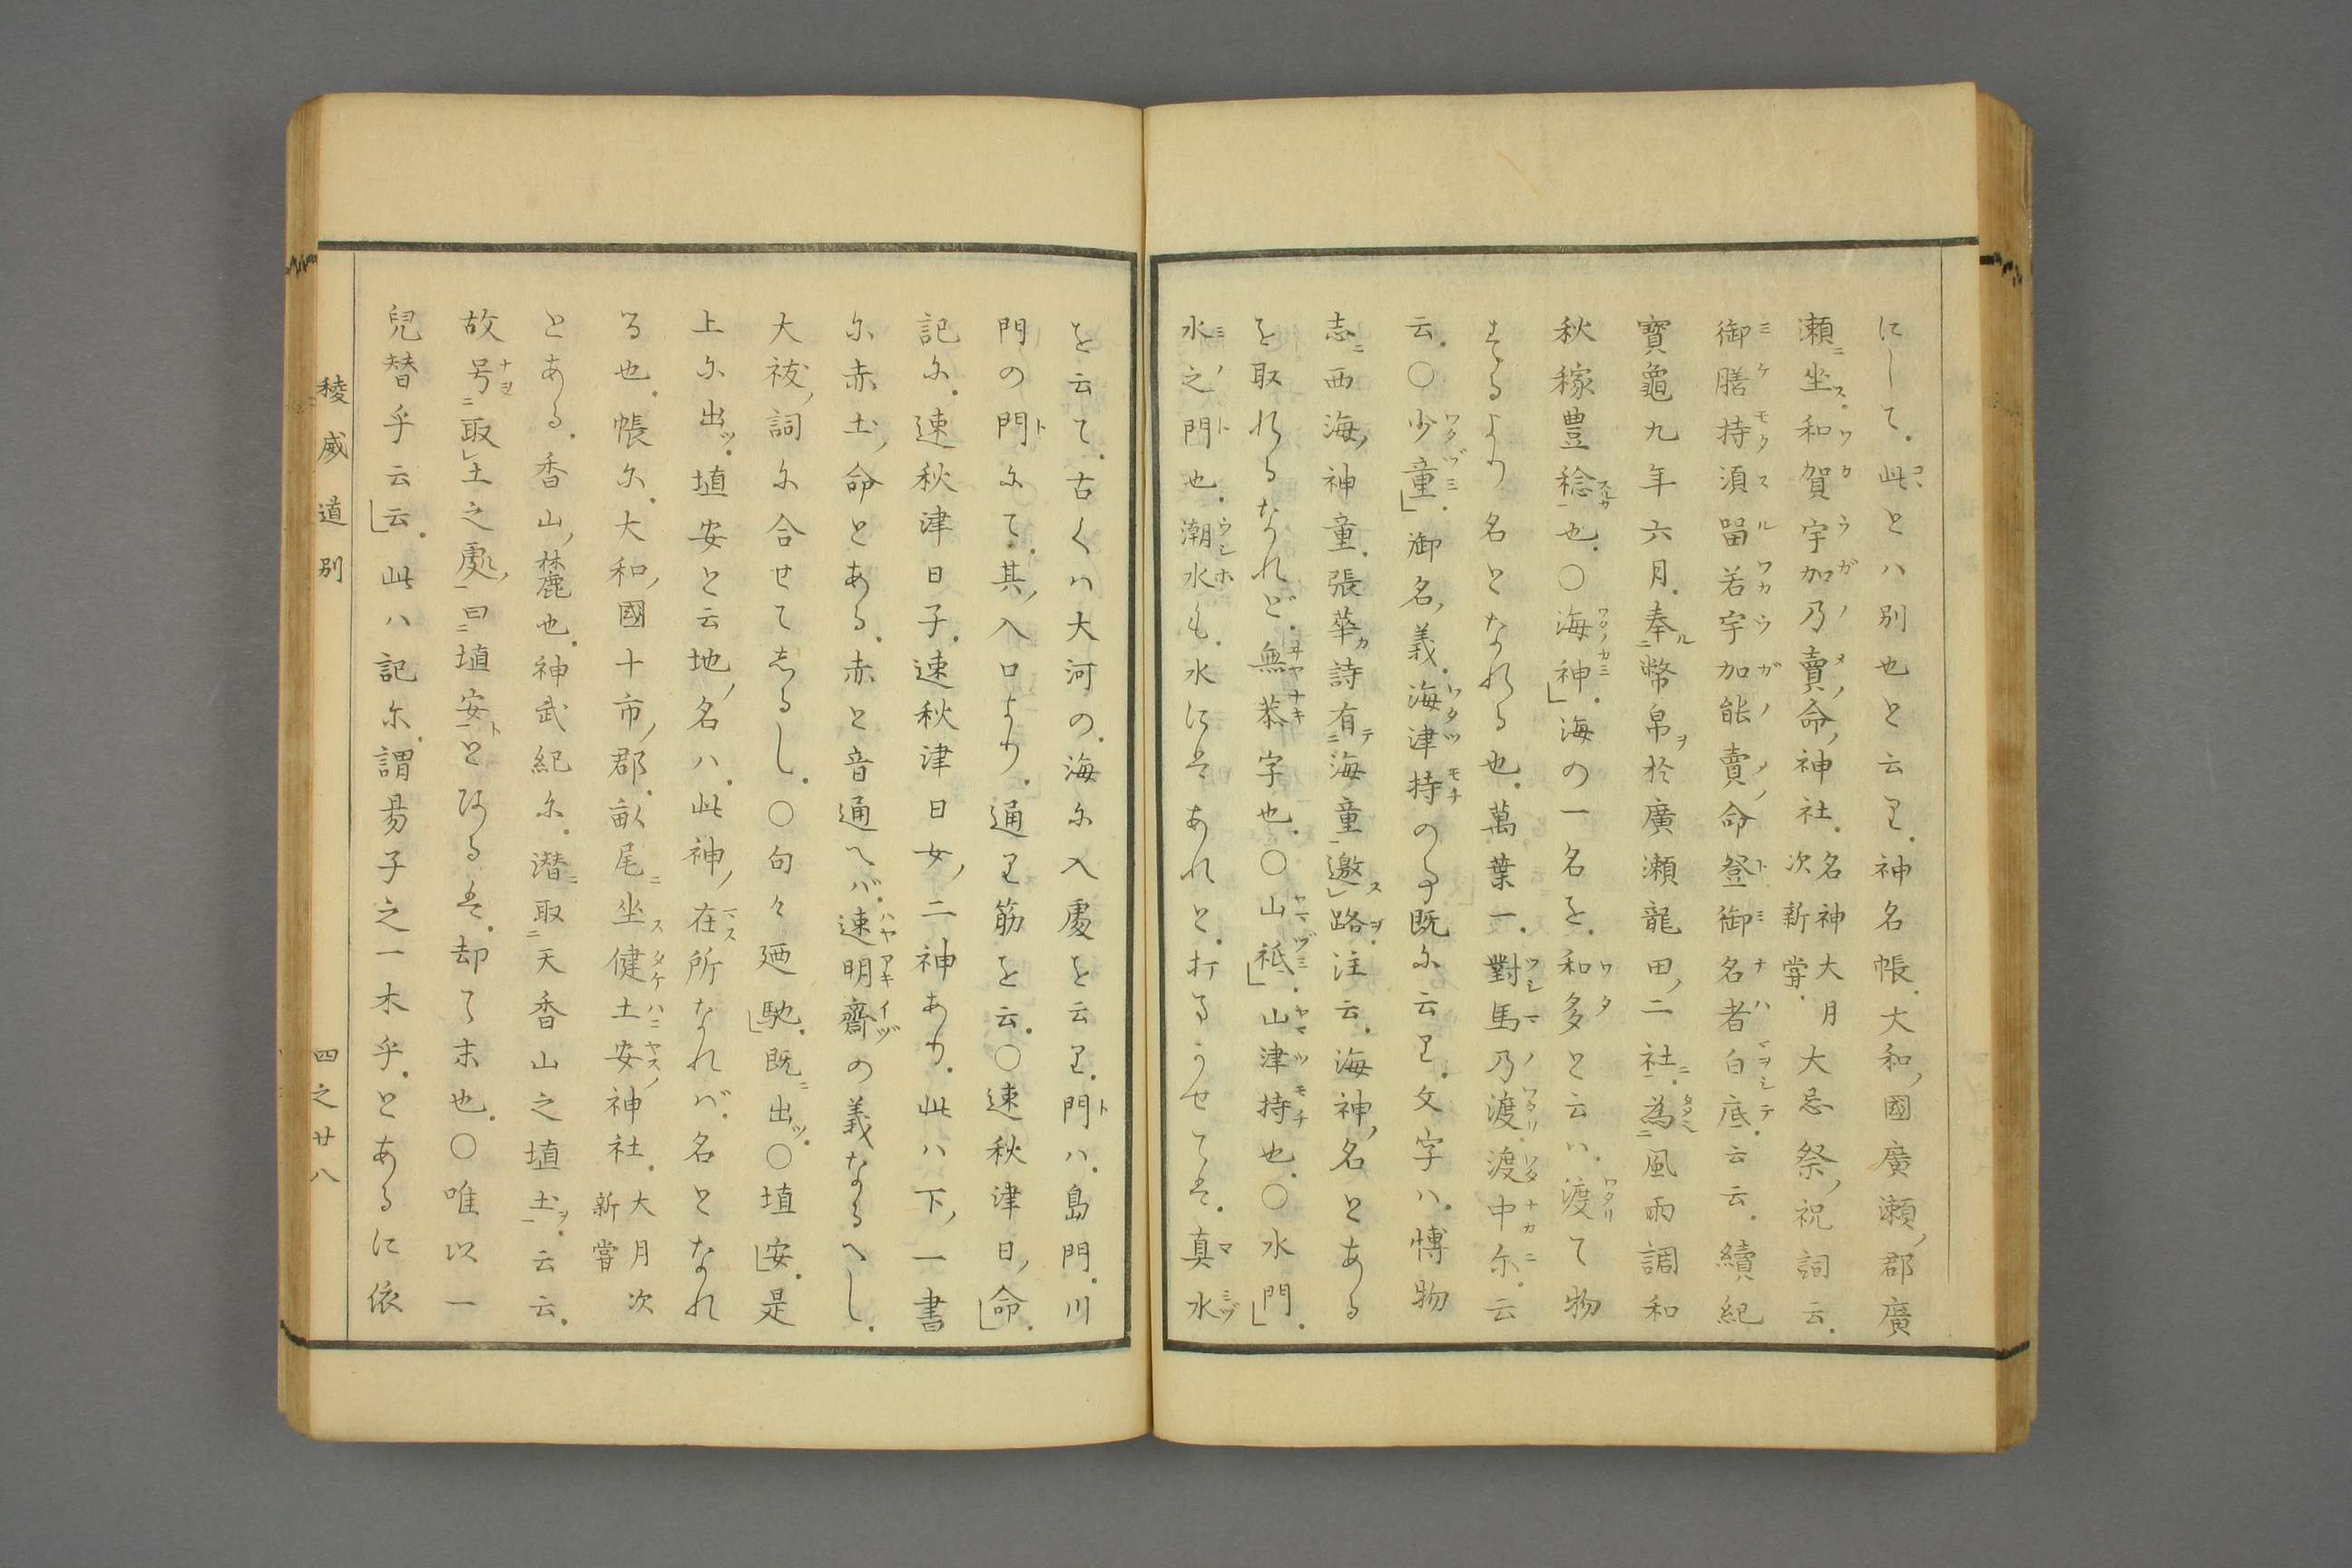 にして。此とハ別也と云り。神名帳。大和ノ國廣瀬ノ郡廣
瀬ニ坐ス。和賀宇加乃賣ノ命ノ神社。名神大月次新嘗。大忌祭ノ祝詞云。
御膳持須留若宇加能賣ノ命登御名者白底。云云。續紀
寶龜九年六月。奉ル二幣帛ヲ於廣瀬龍田ノ二社ニ一。為ニ二風雨調和
秋稼豊稔スルカ一也。○海神」。海の一名を。和多と云ハ。渡て物
するより名となれる也。萬葉一。對馬乃渡渡中尓。云
云。○少童」。御名ノ義。海津持のよし既に云り。文字ハ。博物
志ニ西海ノ神童。張華カ詩有テ二海童一邀スレ路ヲ。注云。海神ノ名とある
を取れるなれど。無恭字也。○山祇」。山津持也。○水門」。
水之門也。潮水も。水にはあれと。打まかせては。真水
を云て。古くハ大河の。海尓入處を云り。門ハ。島門。川
門の門尓て。其ノ入口より。通り筋を云。○速秋津日ノ命」。
記尓。速秋津日子。速秋津日女ノ二神あり。此ハ下ノ一書
尓赤土ノ命とある。赤と音通へバ。速明齋の義なるへし。
大祓ノ詞尓合せてしるし。○句々廼馳」。既ニ出ツ。○埴安」。是
上尓出ツ。埴安と云地ノ名ハ。此神ノ在ス所なれバ。名となれ
る也。帳尓。大和ノ國十市ノ郡。畝尾ニ坐ス健土安ノ神社。大月次新嘗
とある。香山ノ麓也。神武紀尓。潜ニ取ニ二天香山之埴土ヲ一。云云。
故号ナヲ二取レ土之處ノ一曰二埴安ト一とあるは。却て末也。○唯以一
兒替乎云云」。此ハ記尓。謂昜子之一木乎。とあるに依
稜威道別
四之廿八